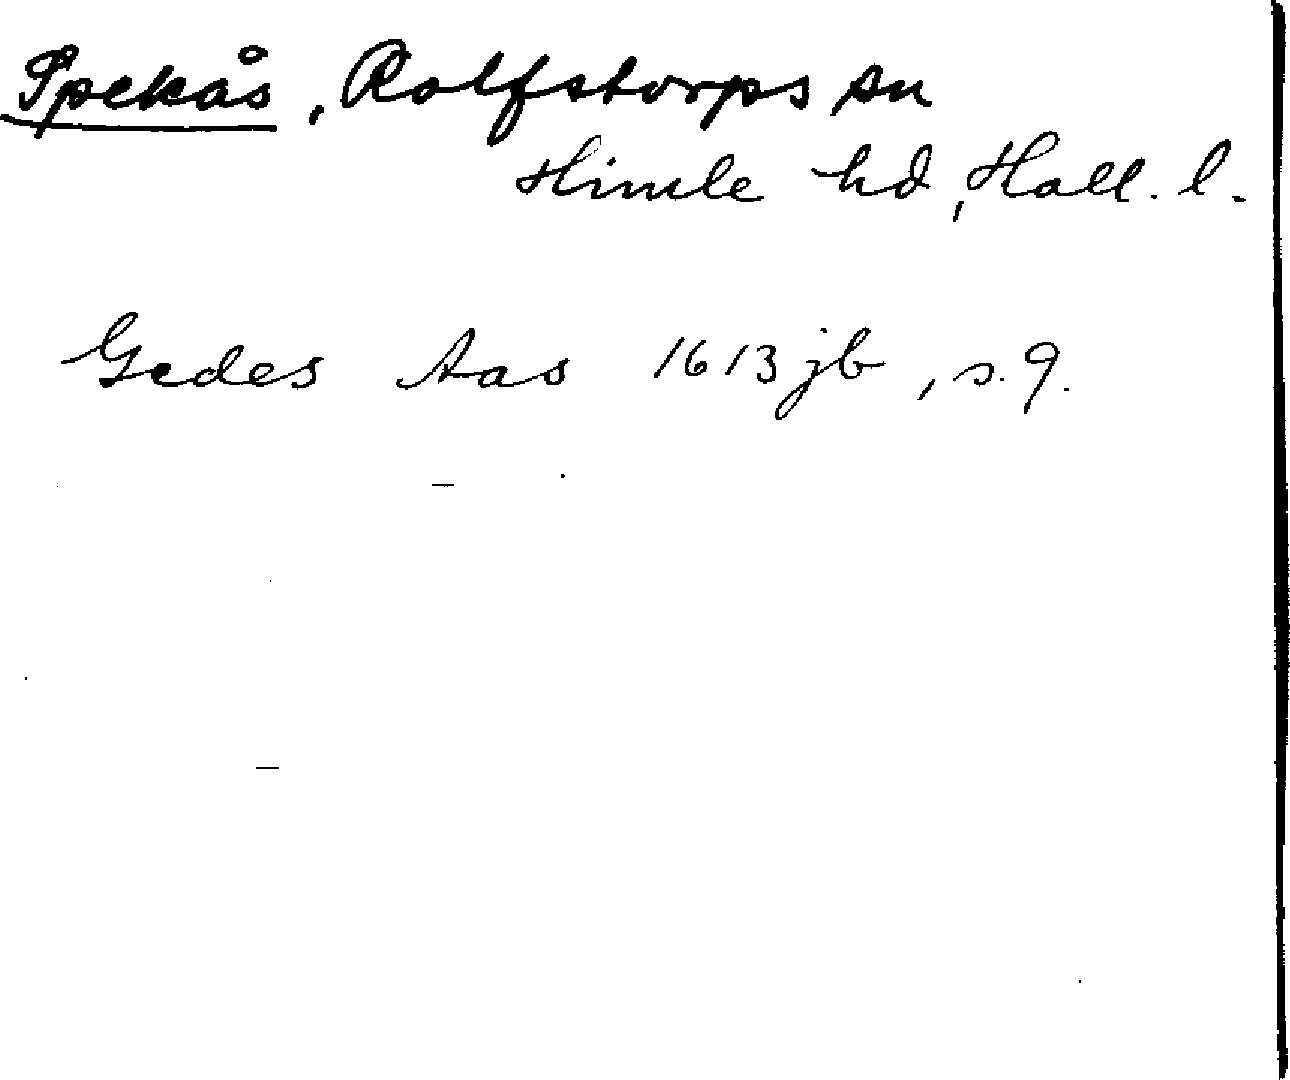 Spekås, Rolfstorps sn
Himle hd, Hall. l.
Gedes Aas 1613 jb, s. 9.